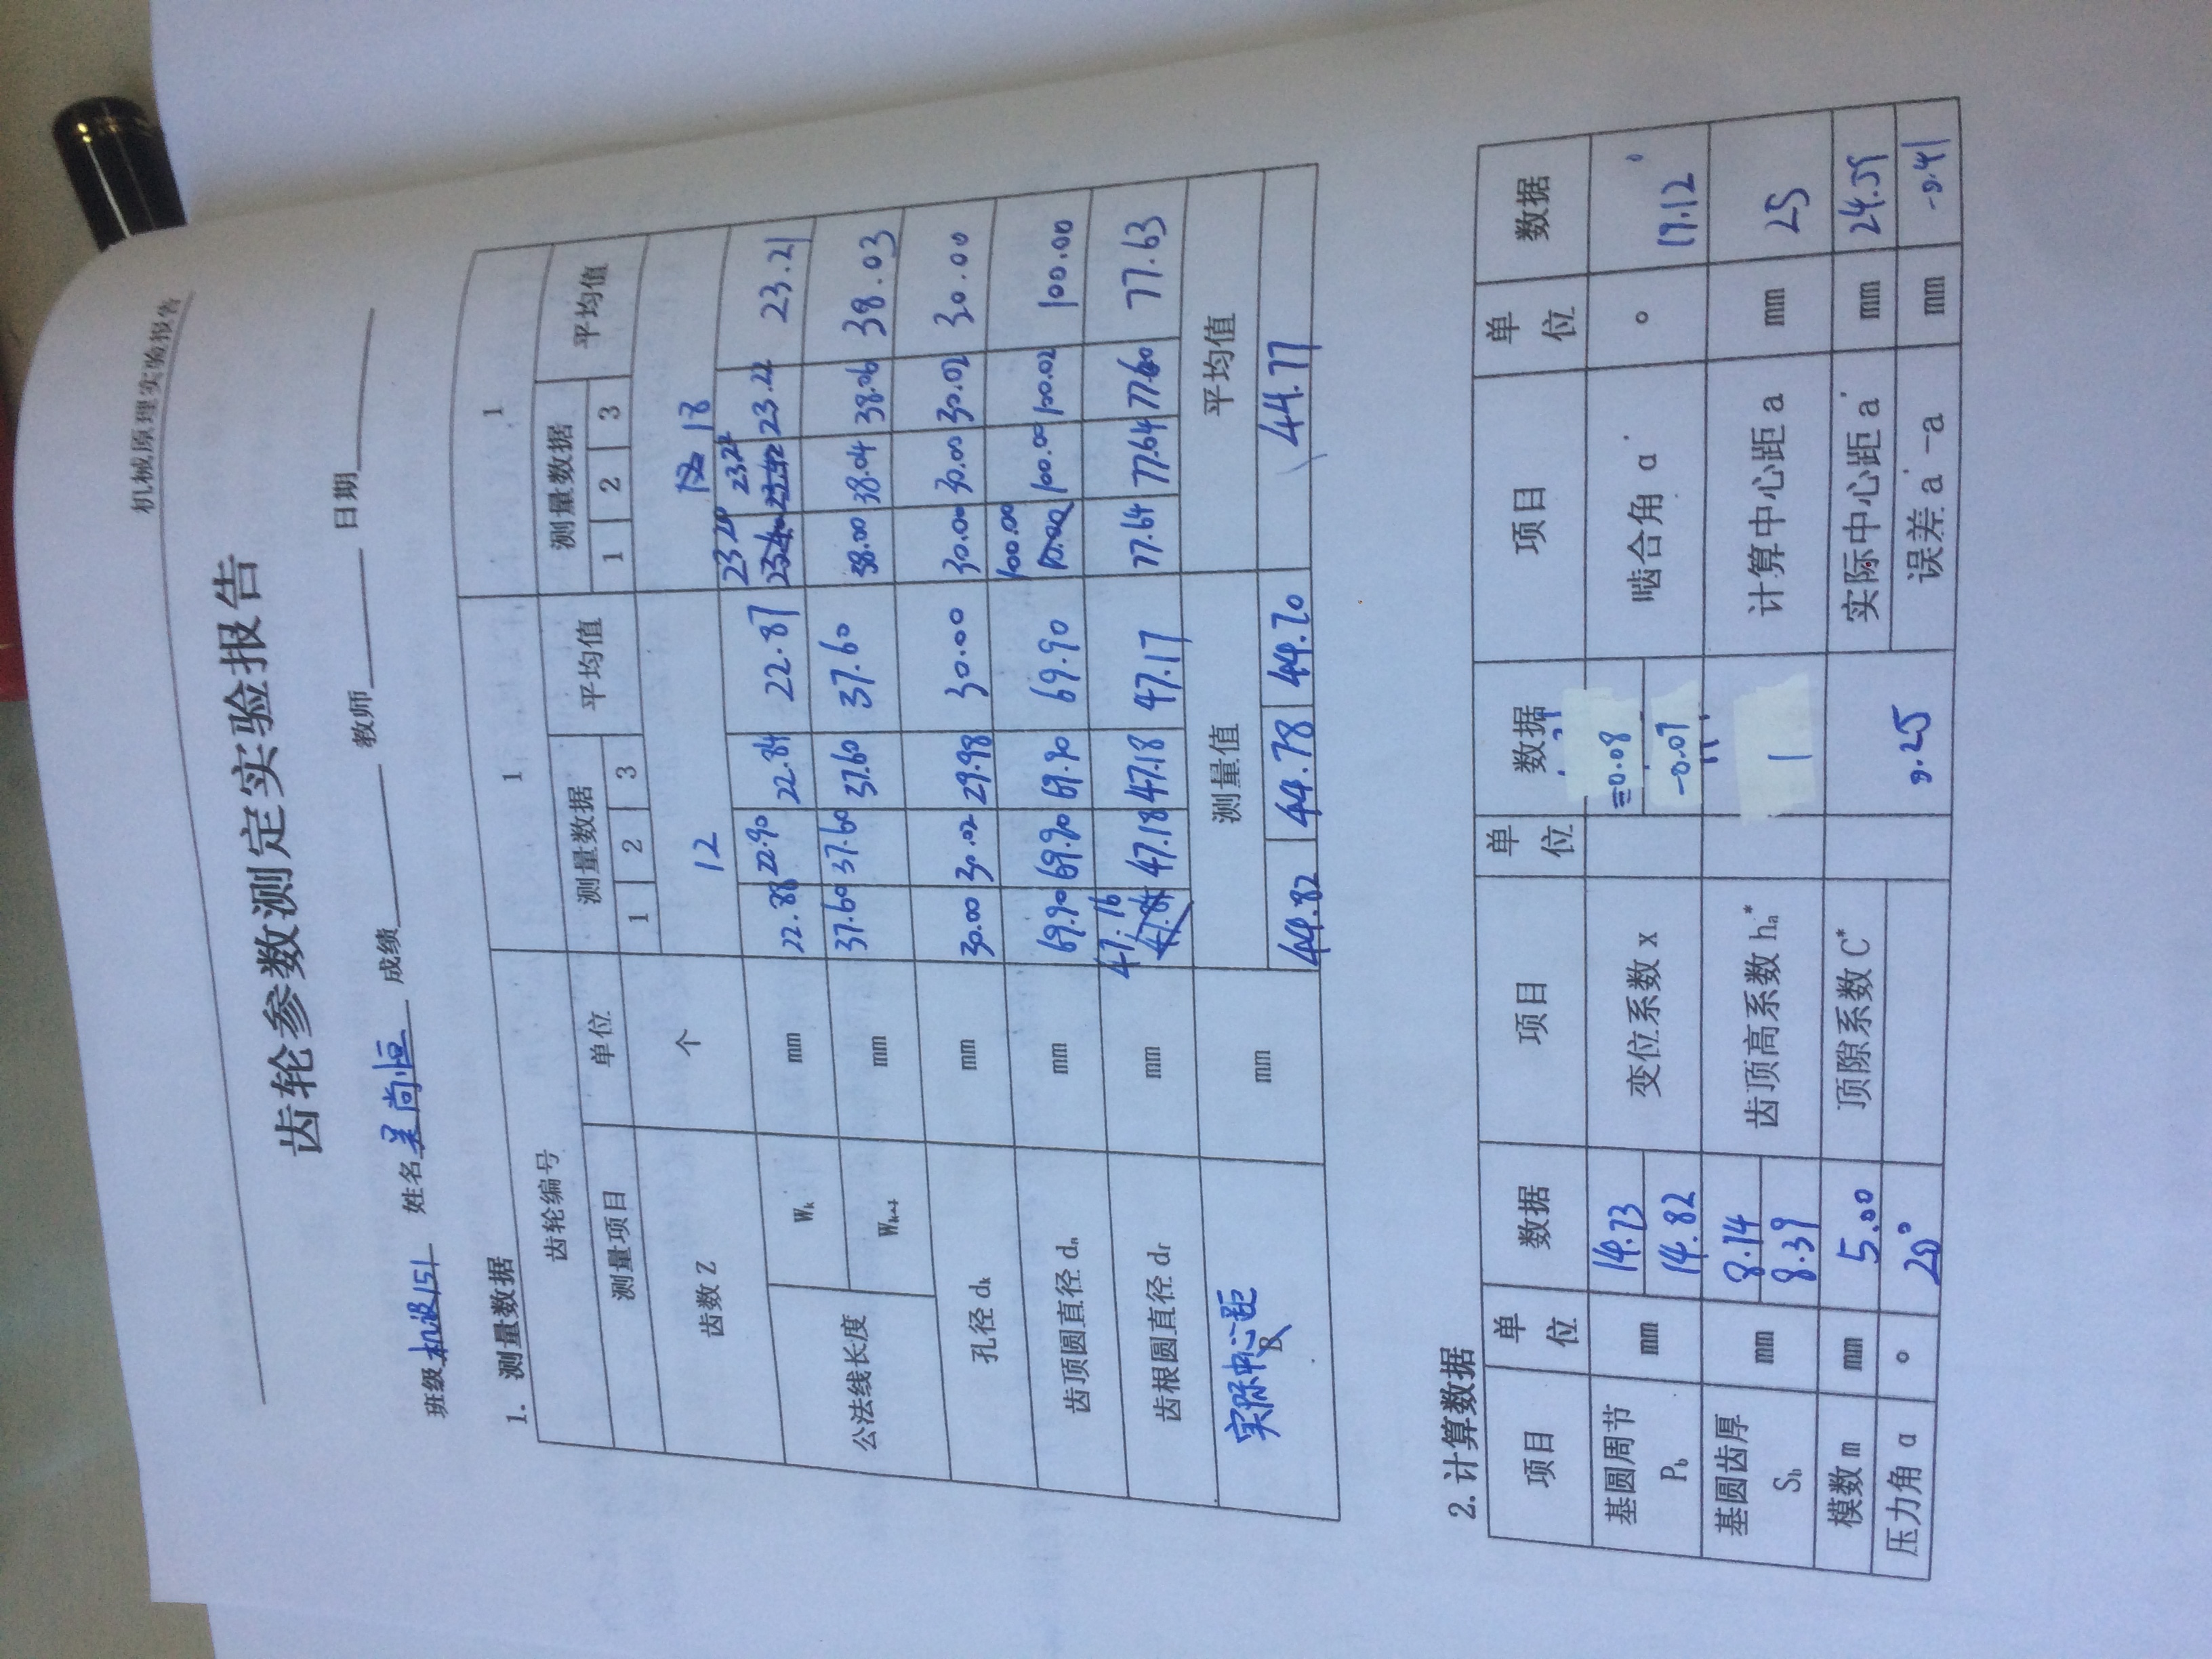 机械原理实验报告
齿轮参数测定实验报告
班级 机设151 姓名 吴尚恒 成绩 教师 日期
1. 测量数据
齿轮编号 1 1
测量项目 单位 测量数据 平均值 测量数据 平均值
1 2 3 1 2 3
齿数 Z 个 12 18
公法线长度 Wk mm 22.88 22.90 22.84 22.87 23.20 23.22 23.22 23.21
Wk+1 mm 37.60 37.60 37.60 37.60 38.00 38.04 38.06 38.03
孔径 dk mm 30.00 30.02 29.98 30.00 30.00 30.00 30.02 30.00
齿顶圆直径 da mm 69.90 69.90 69.90 69.90 100.00 100.00 100.02 100.00
齿根圆直径 df mm 47.16 47.18 47.18 47.17 77.64 77.64 77.60 77.63
实际中心距 mm 测量值 平均值
44.82 44.78 44.70 44.77
2.计算数据
项目 单位 数据 项目 单位 数据 项目 单位 数据
基圆周节 Pb mm 14.73 14.82 变位系数 x -0.08 -0.07 啮合角 α' ° 19.12
基圆齿厚 Sb mm 8.14 8.39 齿顶高系数 ha* 1 计算中心距 a mm 25
模数 m mm 5.00 顶隙系数 C* 0.25 实际中心距 a' mm 24.59
压力角 α ° 20° 误差 a'-a mm -0.41